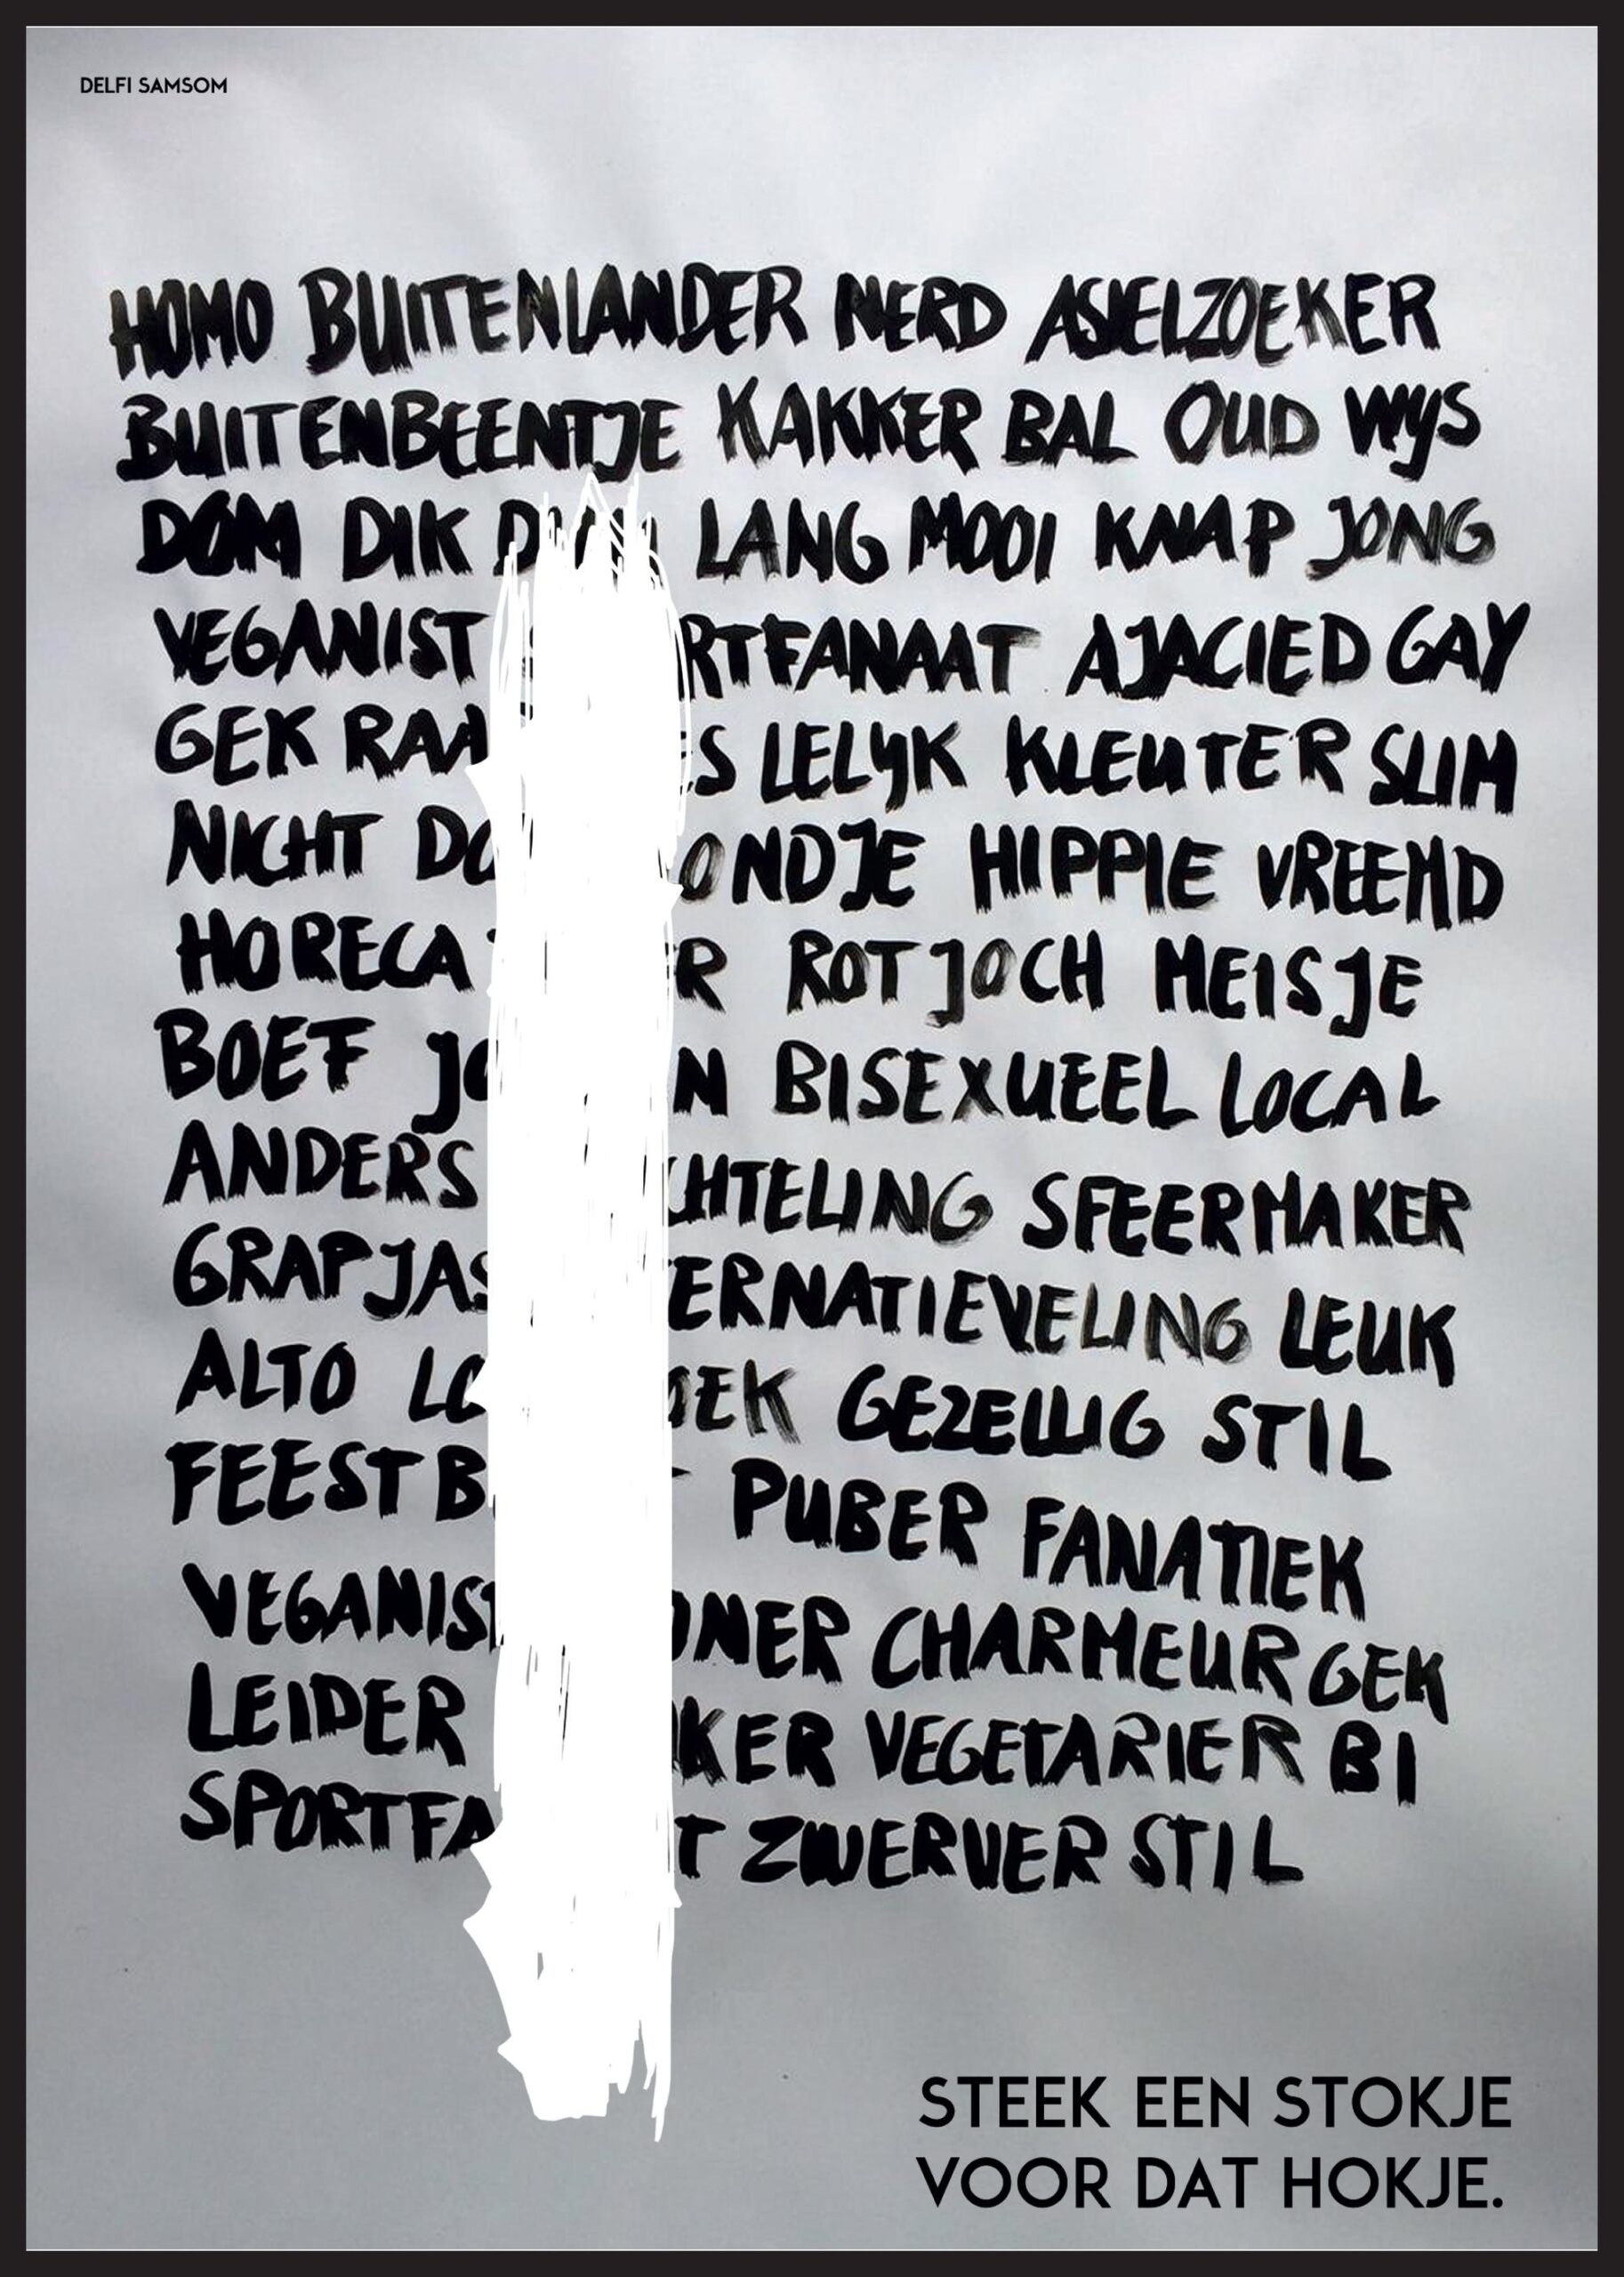 DELFI SAMSOM
HOMO BUITENLANDER NERD ASIELZOEKER
BUITENBEENTJE KAKKER BAL OUD WYS
DOM DIK LANG MOOI KNAP JONG
VEGANIST RTFANAAT AJACIED GAY
GEK RAA ES LELYK KLEUTER SLIM
NICHT DO ONDJE HIPPIE VREEMD
HORECA ER ROTJOCH MEISJE
BOEF JO N BISEXUEEL LOCAL
ANDERS CHTELING SFEERMAKER
GRAPJAS ERNATIEVELING LEUK
ALTO LO OEK GEZELLIG STIL
FEESTB PUBER FANATIEK
VEGANIST ONER CHARMEUR GEK
LEIDER KER VEGETARIER BI
SPORTFA T ZWERVER STIL
STEEK EEN STOKJE
VOOR DAT HOKJE.